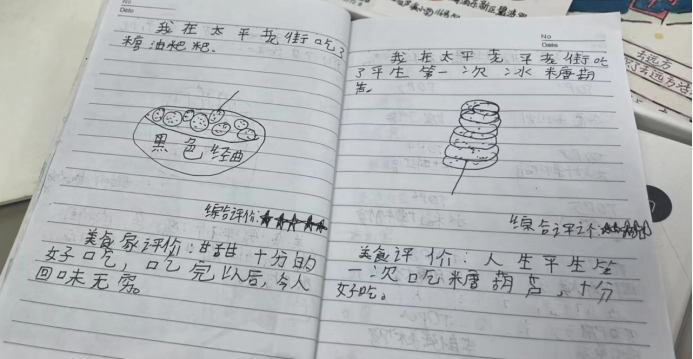 No
Date
我在太平老街吃了
糖油粑粑。
黑色经典
综合评价:★★★★★
美食家评价:甘甜 十分的
好吃,吃完以后,令人
回味无穷。
No
Date
我在太平老 平老街吃
了平生第一次冰糖葫
芦。
综合评价:★★★★★
美食评价:人生平生第
一次吃糖葫芦,十分
好吃。
去远方